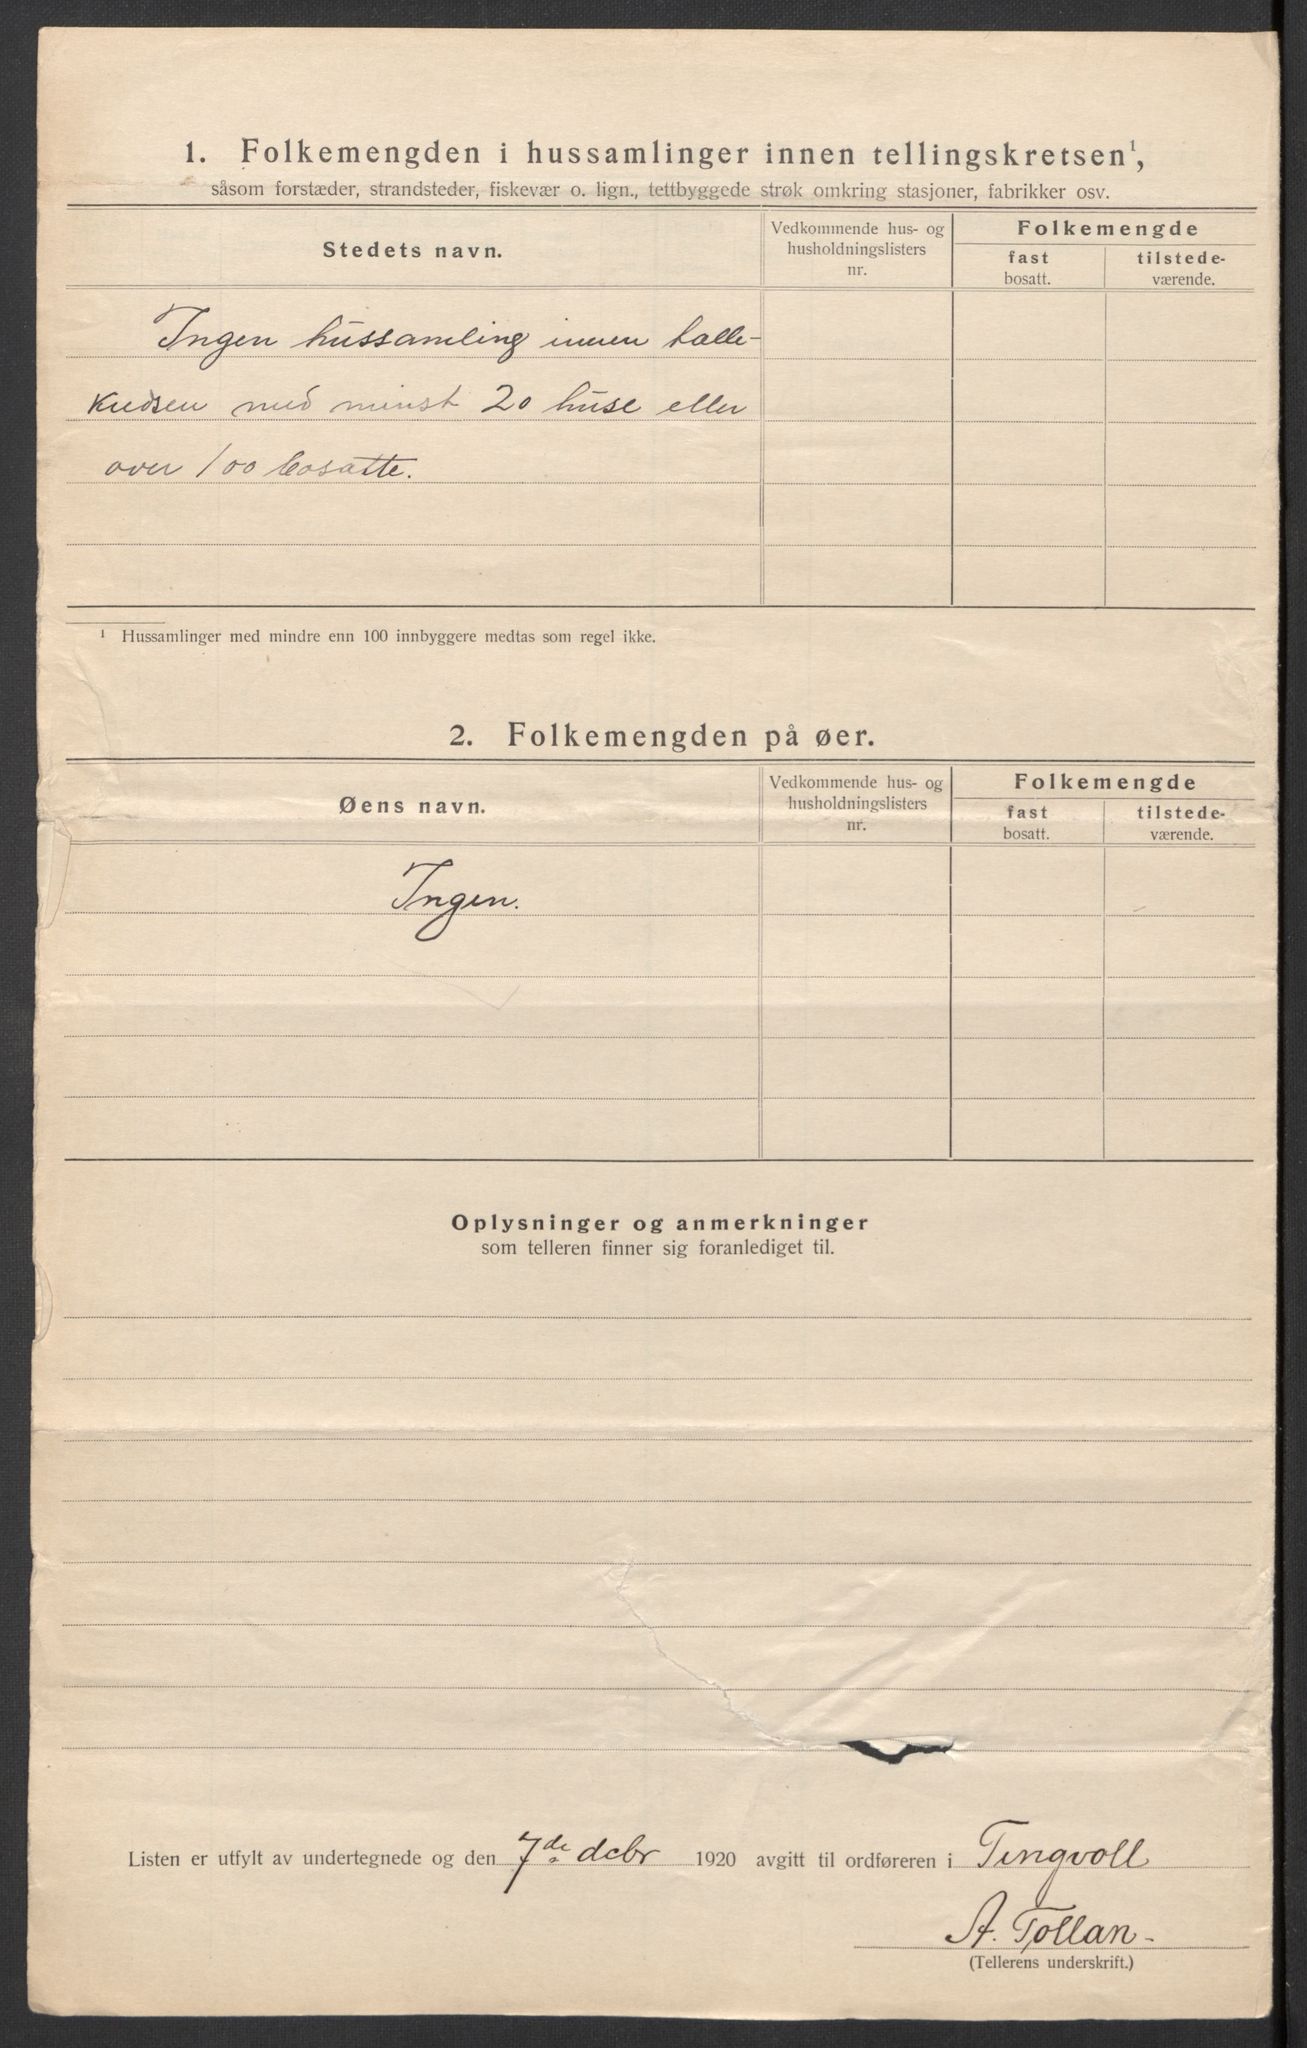 1. Folkemengden i hussamlinger innen tellingskretsen¹,
såsom forstæder, strandsteder, fiskevær o. lign., tettbyggede strøk omkring stasjoner, fabrikker osv.
Stedets navn.
Vedkommende hus- og
husholdningslisters
nr.
Folkemengde
fast
bosatt.
tilstede-
værende.
Ingen hussamling innen tælle-
kredsen med minst 20 huse eller
over 100 bosatte.
¹ Hussamlinger med mindre enn 100 innbyggere medtas som regel ikke.
2. Folkemengden på øer.
Øens navn.
Vedkommende hus- og
husholdningslisters
nr.
Folkemengde
fast
bosatt.
tilstede-
værende.
Ingen.
Oplysninger og anmerkninger
som telleren finner sig foranlediget til.
Listen er utfylt av undertegnede og den 7de debr 1920 avgitt til ordføreren i Tingvoll
A. Tollan
(Tellerens underskrift.)